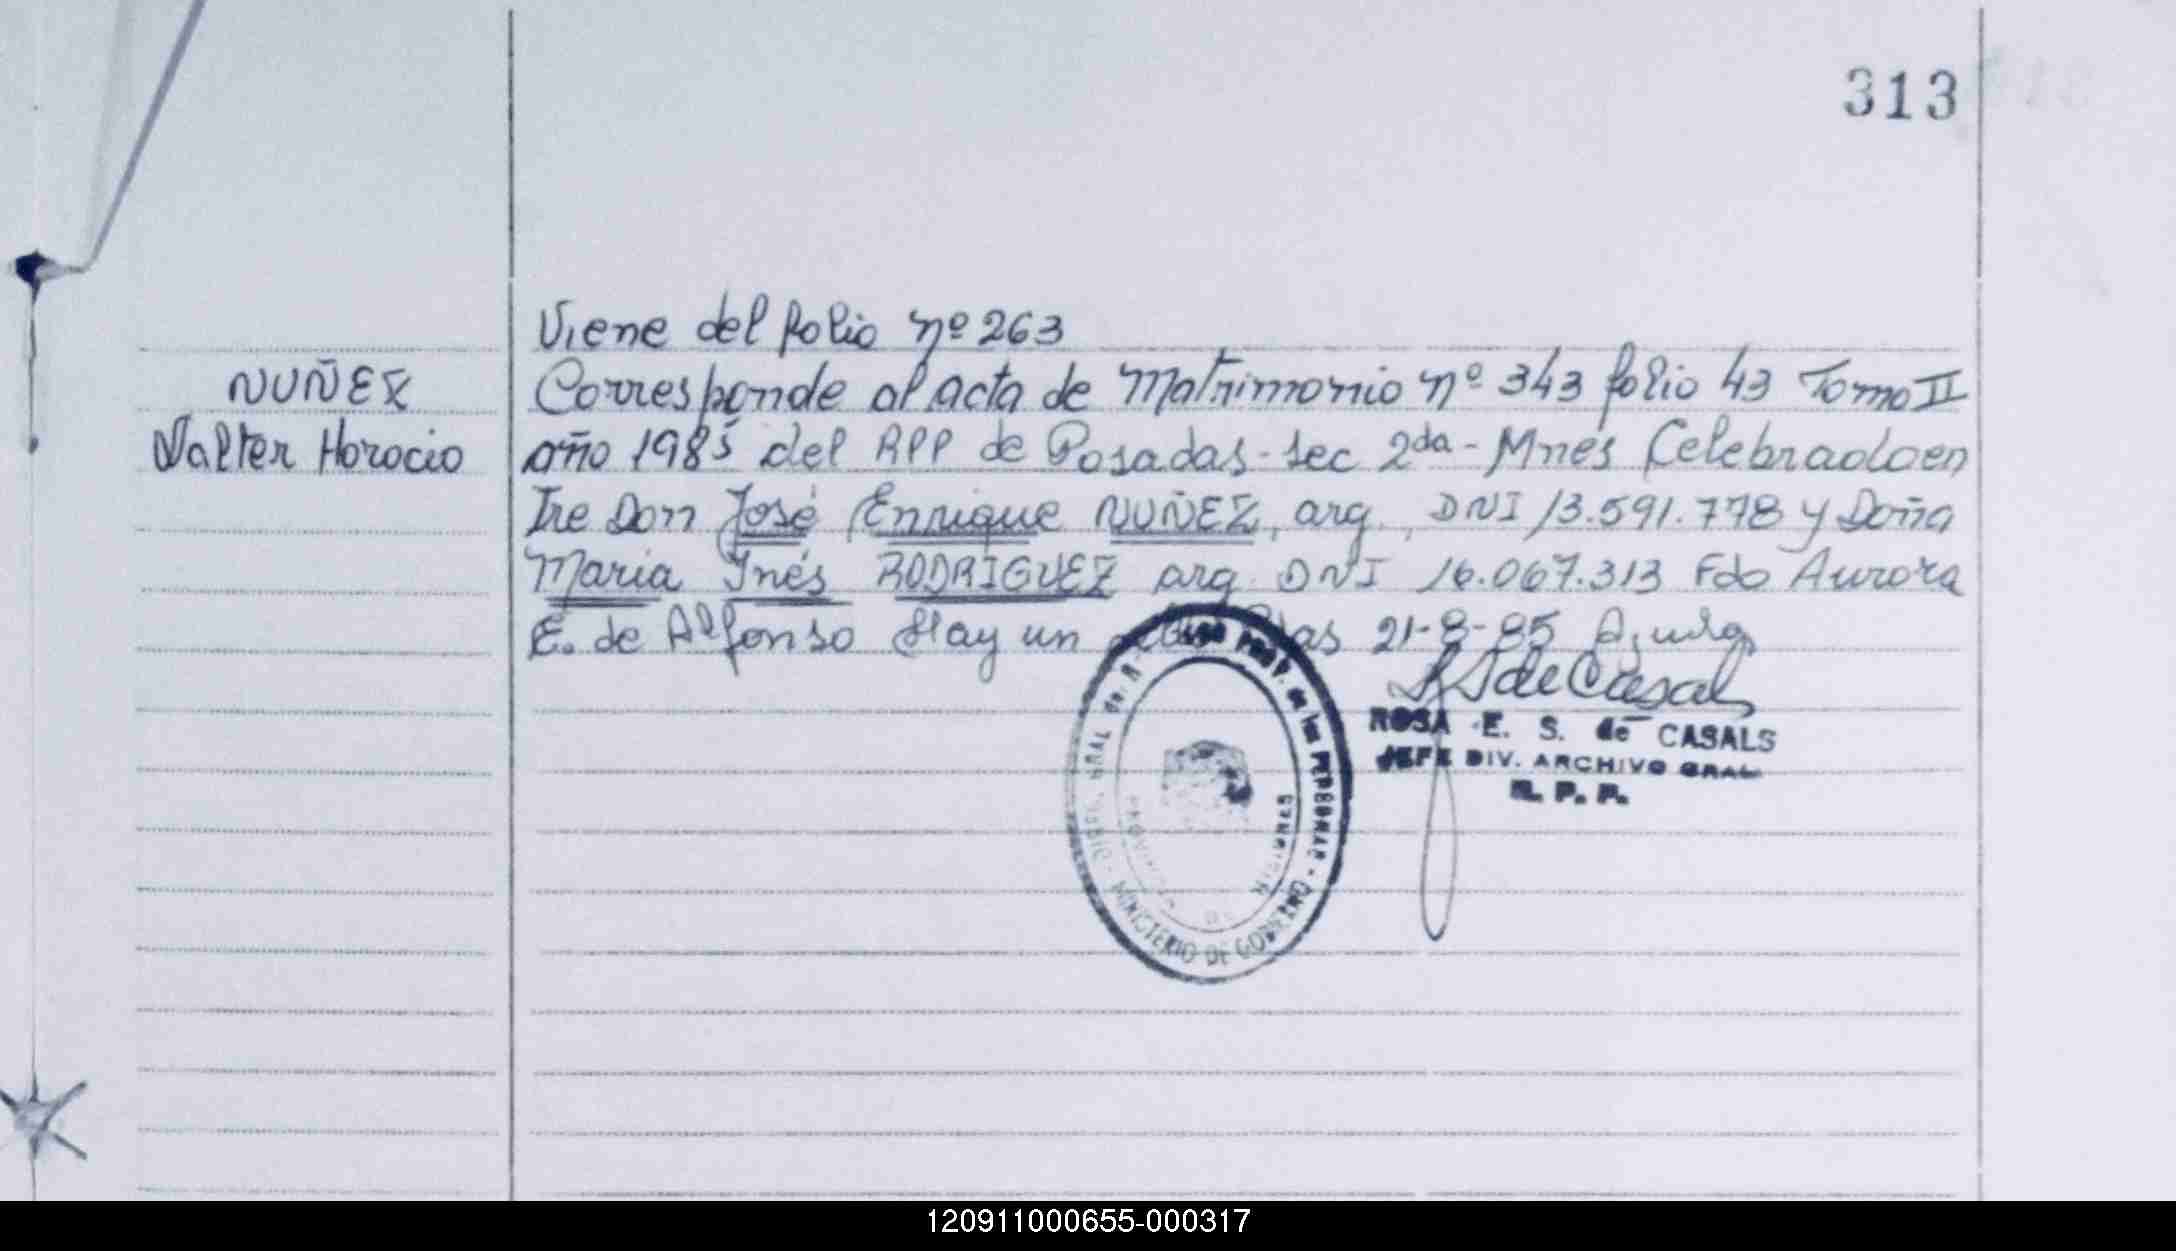 313
Viene del folio nº 263
NUÑEZ
Walter Horacio
Corresponde al acta de Matrimonio nº 343 folio 43 Tomo II
año 1985 del RPP de Posadas - sec 2da - Mnes Celebrado en
tre Don José Enrique NUÑEZ, arg., DNI 13.591.778 y Doña
Maria Inés RODRIGUEZ arg. DNI 16.067.313 Fdo Aurora
E. de Alfonso Hay un 21-8-85
ROSA E. S. de CASALS
JEFE DIV. ARCHIVO GRAL
R. P. P.
PROV. de las PERSONAS - MINISTERIO DE GOBIERNO
PROVINCIA DE MISIONES
120911000655-000317